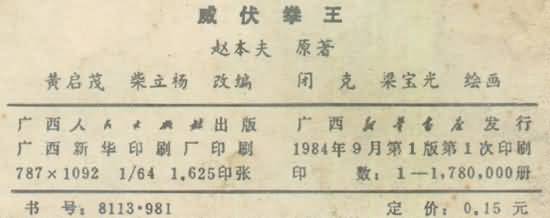 威伏拳王
赵本夫 原著
黄启茂 柴立杨 改编 闭克 梁宝光 绘画
广西人民出版社出版 广西新华书店发行
广西新华印刷厂印刷 1984年9月第1版第1次印刷
787×1092 1/64 1.625印张 印 数：1—1,780,000册
书 号：8113·981 定 价：0.15元